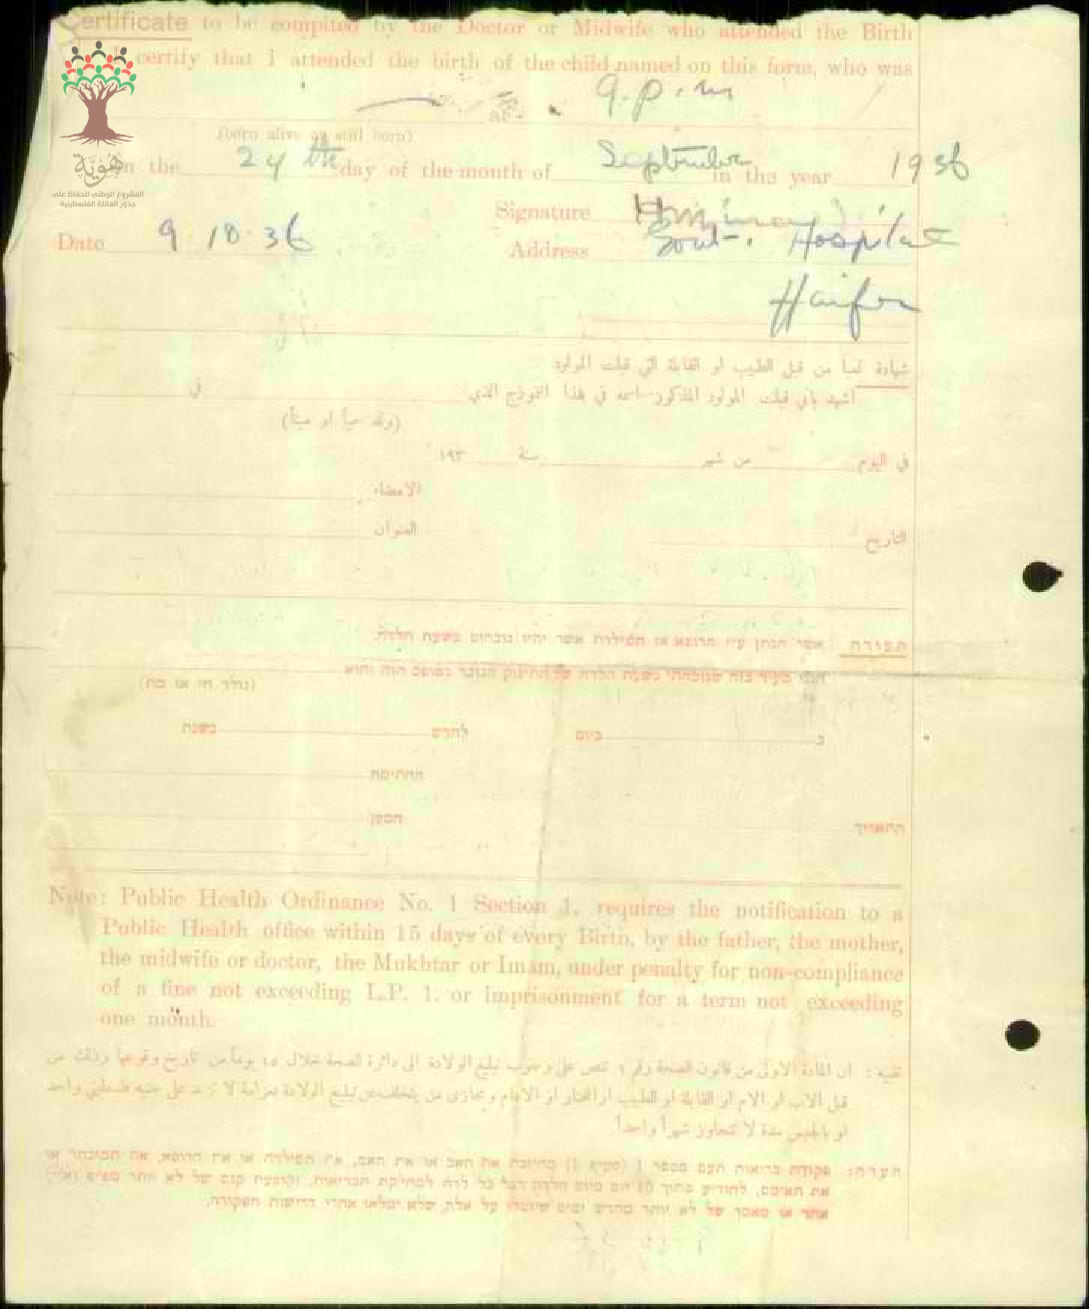 Certificate to be compited by the Doctor or Midwife who attended the Birth
certify that I attended the birth of the child named on this form, who was
at. 9.p.m
(born alive or still born)
هُويَّة
المشروع الوطني للحفاظ على
جذور العائلة الفلسطينية
on the 24th day of the month of September in the year 1936
Signature
Date 9.10.36 Address Govt. Hospital
Haifa
شهادة تملأ من قبل الطبيب او القابلة التي قبلت المولود
اشهد باني قبلت المولود المذكور اسمه في هذا النموذج الذي في
(ولد حياً او ميتاً)
في اليوم من شهر سنة ١٩٣
الامضاء
التاريخ العنوان
תעודה אשר תנתן ע״י הרופא או המילדת אשר יהיו נוכחים בשעת הלדה.
הנני מעיד בזה שנוכחתי בשעת הלדה של התינוק הנזכר בטופס הזה והוא
(נולד חי או מת)
ב ביום לחדש בשנת
החתימה
התאריך המען
Note: Public Health Ordinance No. 1 Section 1. requires the notification to a
Public Health office within 15 days of every Birth, by the father, the mother,
the midwife or doctor, the Mukhtar or Imam, under penalty for non-compliance
of a fine not exceeding L.P. 1. or imprisonment for a term not exceeding
one month.
تنبيه : ان المادة الاولى من قانون الصحة رقم ١ تنص على وجوب تبليغ الولادة الى دائرة الصحة خلال ١٥ يوماً من تاريخ وقوعها وذلك من
قبل الاب او الام او القابلة او الطبيب او المختار او الامام ويجازى من يتخلف عن تبليغ الولادة بغرامة لا تزيد على جنيه فلسطيني واحد
او بالحبس مدة لا تتجاوز شهراً واحداً
הערה: פקודת בריאות העם מספר 1 (סעיף 1) מחייבת את האב או את האם, את המילדת או את הרופא, את המוכתר או
את האימם, להודיע בתוך 15 יום מיום הלדה דבר כל לדה למחלקת הבריאות, וקובעת קנס של לא יותר מפ״א (א״י)
אחד או מאסר של לא יותר מחדש ימים שיוטלו על אלה, שלא ימלאו אחרי דרישות הפקודה.